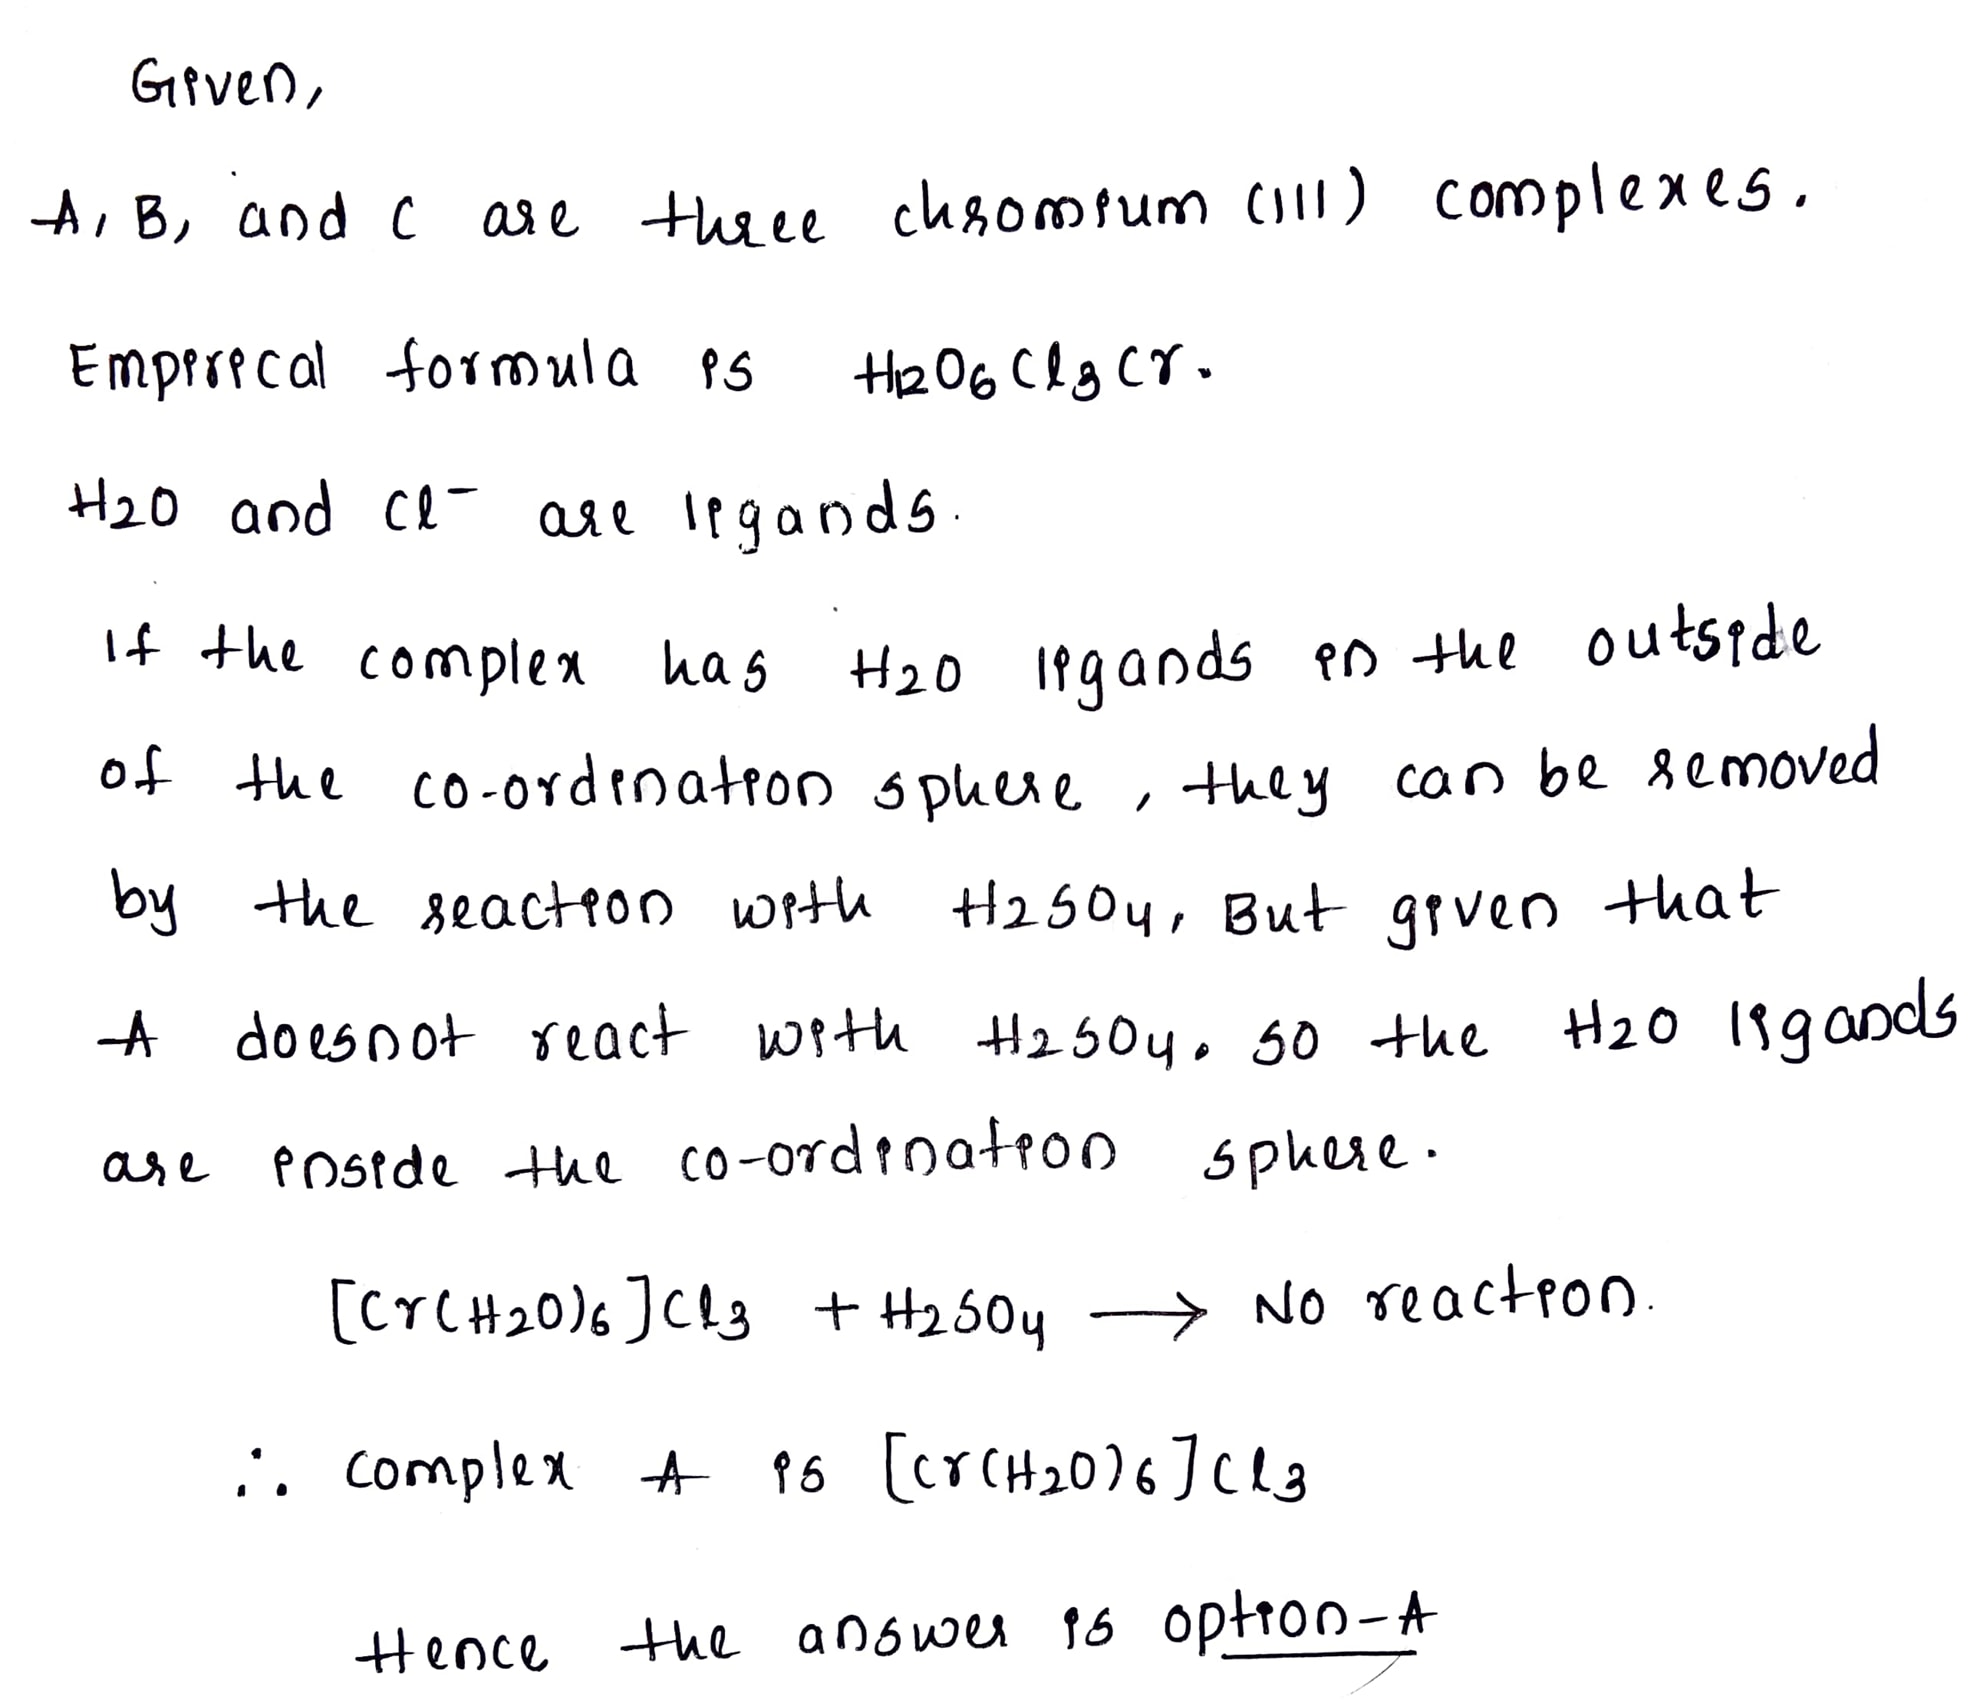 Given,
A, B, and C are three chromium (III) complexes.
Empirical formula is H12O6Cl3Cr.
H2O and Cl- are ligands.
If the complex has H2O ligands in the outside
of the co-ordination sphere, they can be removed
by the reaction with H2SO4. But given that
A doesnot react with H2SO4. so the H2O ligands
are inside the co-ordination sphere.
[Cr(H2O)6]Cl3 + H2SO4 → No reaction.
∴ complex A is [Cr(H2O)6]Cl3
Hence the answer is option-A